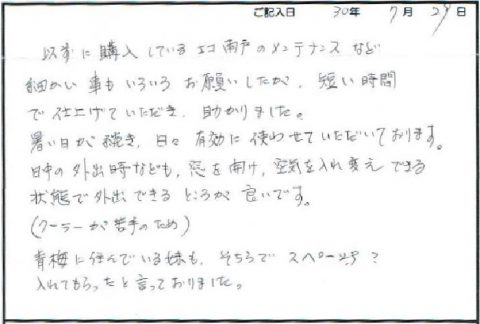 ご記入日 30年 7月 29日
以前に購入しているエコ雨戸のメンテナンスなど
細かい事もいろいろお願いしたが、短い時間
で仕上げていただき、助かりました。
暑い日が続き、日々有効に使わせていただいております。
日中の外出時なども、窓を開け、空気を入れ変えできる
状態で外出できるところが良いです。
(クーラーが苦手のため)
青梅に住んでいる妹も、そちらで ?
入れてもらったと言っておりました。